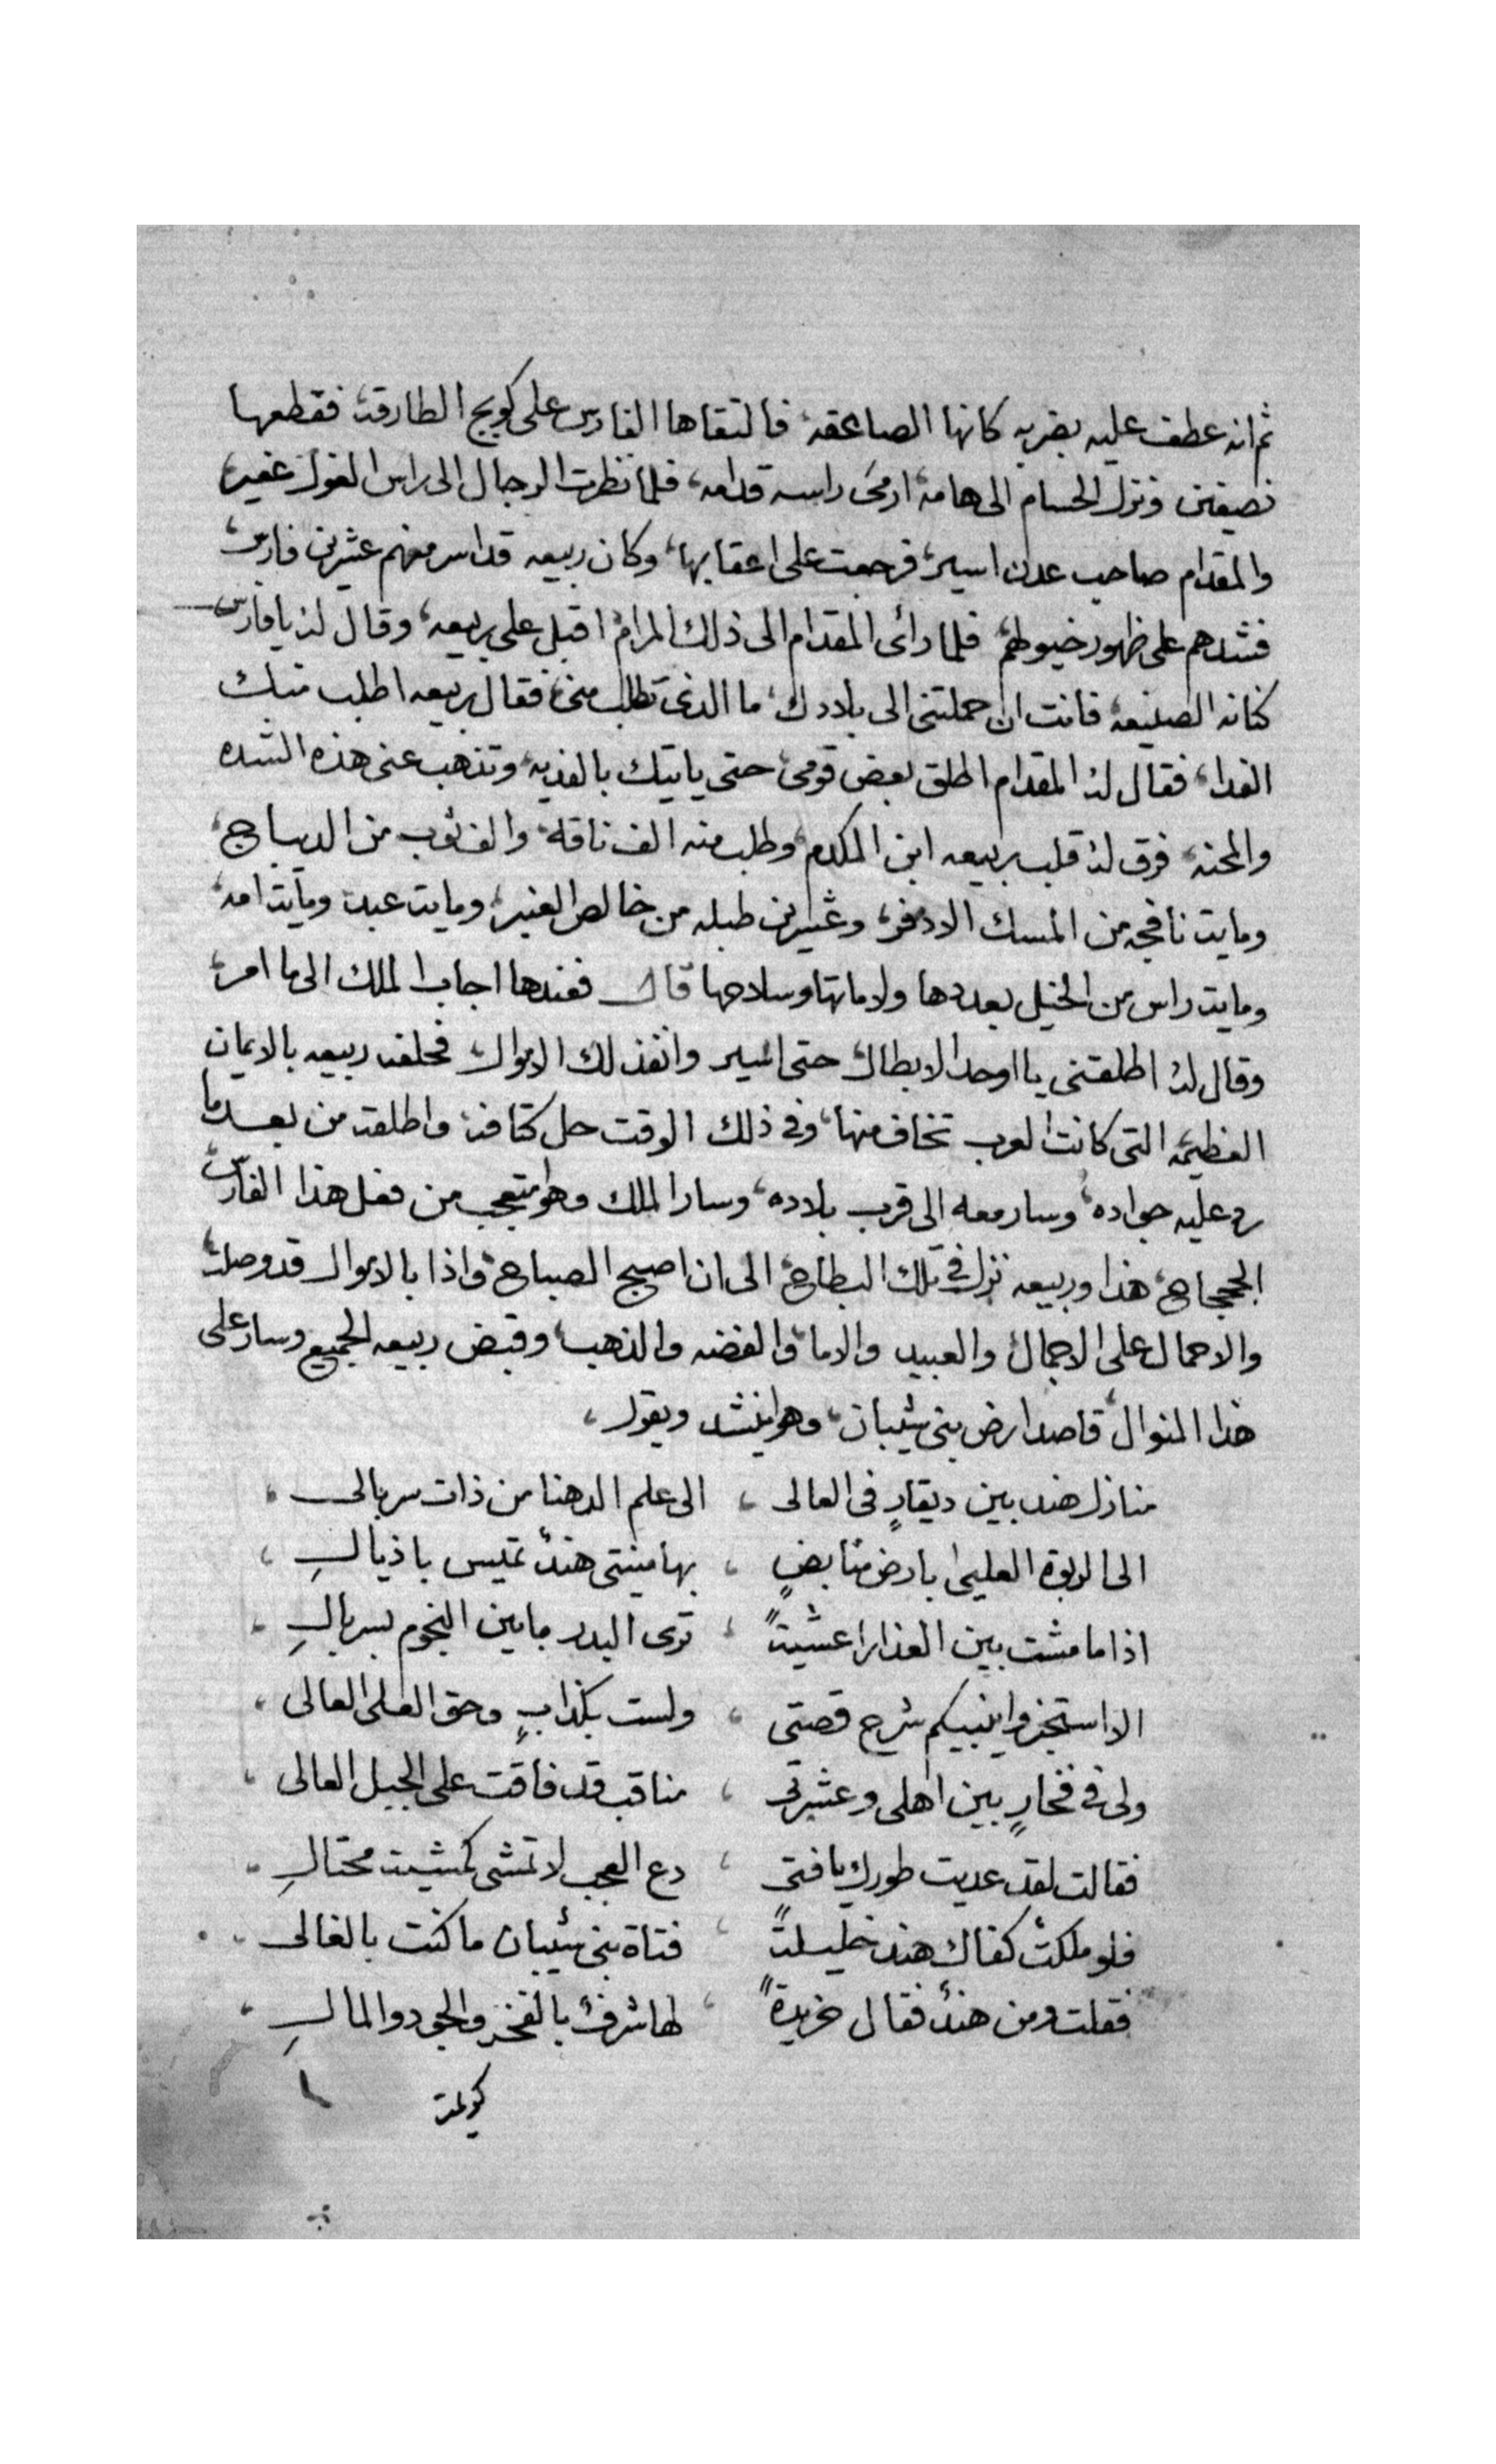 ثم انه عطف عليه بضربه كانها الصاعقه، فالتقاها الفارس على كويج الطارقة، فقطعها
نصيفين ونزل الحسام الى هامته، ارمى راسه قدامه، فلما نظرت الرجال الى راس الغول عفير،
والمقدام صاحب عدن اسير، فرجعت على اعقابها، وكان ربيعه قد اسر منهم عشرين فارس،
فشدهم على ظهور خيولهم، فلما رائى المقدام الى ذلك المرام، اقبل على ربيعه، وقال له يا فارس
كنانه الصنيعه، فانت ان حملتنى الى بلادك، ما الذى تطلب منى، فقال ربيعه اطلب منك
الفدا، فقال له المقدام اطلق بعض قومى، حتى ياتيك بالفديه، وتذهب عنى هذه الشده
والمحنه، فرق له قلب ربيعه ابن المكدم، وطلب منه الف ناقه، والف ثوب من الديباج،
ومايت نافجه من المسك الادفر، وعشرين طبله من خالص العنبر، ومايت عبد، ومايت امه،
ومايت راس من الخيل بعددها ولاماتها وسلاحها قال فعندها اجاب الملك الى ما امر،
وقال له اطلقتنى يا اوحد الابطال، حتى اسير وانفذ لك الاموال، فحلفه ربيعه بالايمان
العظيمه التى كانت العرب تخاف منها، وفى ذلك الوقت حل كتافه، واطلقه من بعد ما
رد عليه جواده، وسار معه الى قرب بلاده، وسار الملك وهو متعجب من فعل هذا الفارس
الججاح، هذا وربيعه نزل فى تلك البطاح، الى ان اصبح الصباح، واذا بالاموال قد وصلت،
والاحمال على الاجمال، والعبيد والاما، والفضه والذهب، وقبض ربيعه الجميع وسار على
هذا المنوال، قاصدا ارض بنى شيبان، وهو ينشد ويقول،
منازل هند بين ديقارٍ فى العالى ، الى علم الدهنا من ذات سربالى ،
الى الربوة العليى بارض منابضٍ ، بها منيتى هندٌ تميس باذيالِ ،
اذا ما مشت بين العذارا عشيةً ، ترى البدر ما بين النجوم بسربالِ ،
الا استخبروا ينبيكم شرح قصتى ، ولست بكذابٍ وحق العلى العالى ،
ولى فى فخارٍ بين اهلى وعشرتى ، مناقب قد فاقت على الجبل العالى ،
فقالت لقد عديت طورك يا فتىٍ ، دع العجب لا تمشى كمشيت محتالِ ،
فلو ملكت كفاك هند خليلةً ، فتاة بنى شيبان ما كنت بالغالى ،
فقلت ومن هندٌ فقال خريدةً ، لها شرفٌ بالفخر والجود والمالِ ،